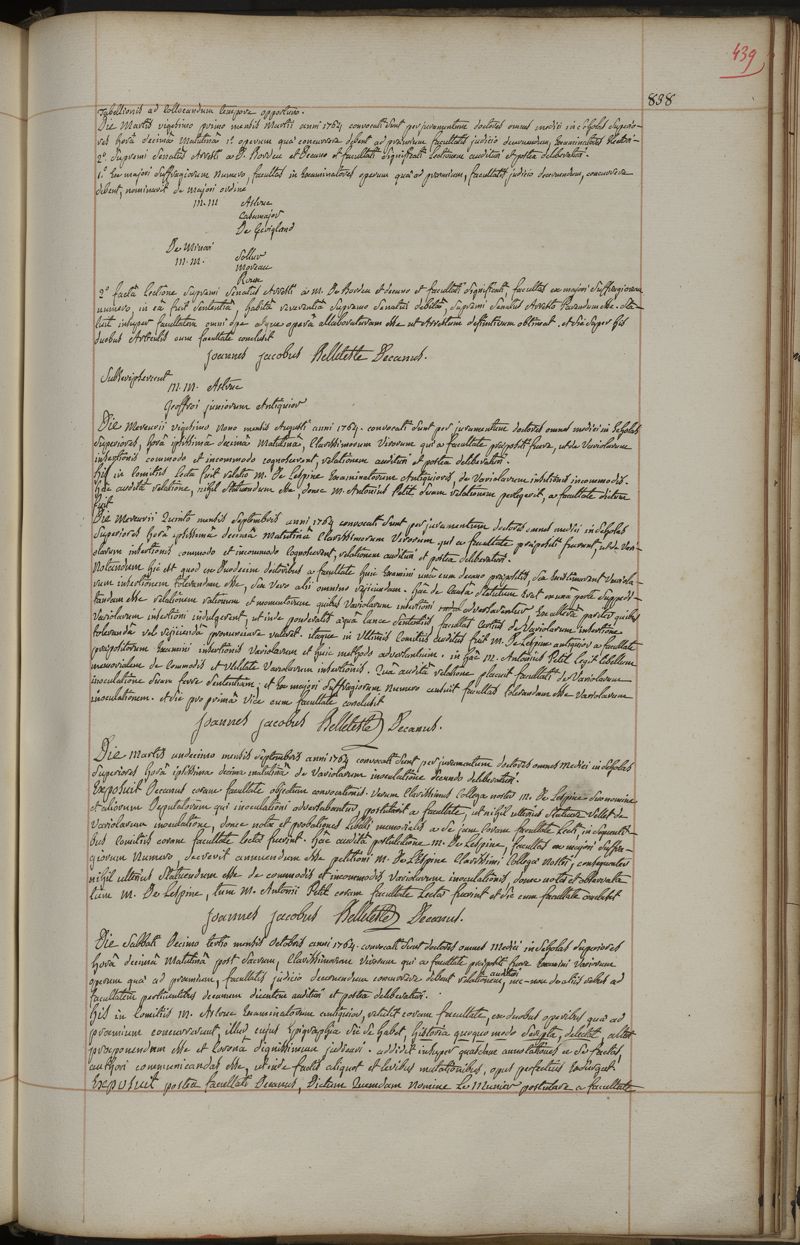 439
838
Tabellionis ad collocandum tempore opportuno.
Die Martis vigesimo primo mensis Martii anni 1764 convocati sunt per juramentum doctores omnes medici in Scholas Superio-
res horâ decimâ Matutinâ 1° operum quæ concurrere debent ad præmium facultatis judicio decernendum, Examinatores
2° Supremi Senatûs Arresti a D. Bordeu et Decano et facultati significati lectionem audituri et postea deliberaturi.
1° Ex majori suffragiorum numero, facultas in Examinatores operum quæ ad præmium, facultatis judicio decernendum, concurrere
debent, nominavit de majori ordine
M.M Astruc
Casamajor
De Gevigland
De Minori
M.M. Solluv
Moreau
Roux
2° factâ lectione Supremi Senatûs Arresti a M. De Bordeu et decano et facultati significati, facultas ex majori suffragiorum
numero, in eâ fuit sententiâ, habitâ reverentiâ Supremo Senatui debitâ, Supremi Senatûs Arresto Parendum esse.
insuper facultatem omni ope atque operâ allaboraturam esse ut Arrestum definitivum obtineat. et sic super his
duobus Articulis cum facultate conclusit
Joannes Jacobus Belleteste Decanus.
Subscripserunt
M.M. Astruc
Geoffroi juniorum Antiquior
Die Mercurii vigesimo nono mensis Augusti anni 1764. convocati sunt per juramentum doctores omnes medici in Scholas
Superiores, horâ ipsissimâ decimâ Matutinâ, Clarissimorum Virorum qui a facultate præpositi fuere, ut de Variolarum
insertionis commodo et incommodo cognoscerent, relationem audituri et postea deliberaturi.
His in Comitiis lecta fuit relatio M. De Lespine Examinatorum Antiquioris, de Variolarum insertionis incommodis.
Hâc auditâ relatione, nihil statuendum esse, donec M. Antonius Petit suam relationem perlegerit, a facultate dictum
fuit.
Die Mercurii Quinto mensis Septembris anni 1764 convocati sunt per juramentum doctores omnes medici in Scholas
Superiores horâ ipsissimâ decimâ Matutinâ Clarissimorum Virorum qui ex facultate præpositi fuerunt, ut de Vari-
olarum insertionis commodo et incommodo cognoscerent, relationem audituri et postea deliberaturi.
Notandum hîc est quod ex Duodecim doctoribus a facultate huic Examini una cum decano præpositis, sex existimarunt Variola-
rum insertionem tolerandam esse, sex vero alii omnino rejiciendam. Hâc de Causâ Statutum erat ex unâ parte
tandam esse relationem rationum et momentorum quibus Variolarum insertioni adversantur Ex alterâ pariter quibus
Variolarum insertioni indulgerent, ut inde ponderatis æquâ lance Sententiis facultas certius de Variolarum insertione
tolerandâ vel rejiciendâ pronunciare valeret. itaque in Ultimis Comitiis auditus fuit M. De Lespine antiquior a facultate
præpositorum Examini insertionis Variolarum et huic methodo adversantium. in his M. Antonius Petit legit libellum
memorialem de Commodis et Utilitate Variolarum insertionis. Quâ auditâ relatione placuit facultati de Variolarum
inoculatione suam ferre Sententiam; et Ex majori Suffragiorum Numero censuit facultas tolerandam esse Variolarum
inoculationem. et sic pro primâ Vice cum facultate conclusit
Joannes Jacobus Belleteste Decanus.
Die Martis undecimo mensis Septembris anni 1764 convocati sunt per juramentum doctores omnes Medici in Scholas
Superiores horâ ipsissimâ decimâ matutinâ de Variolarum inoculatione secundo deliberaturi.
Exposuit Decanus coram facultate objectum convocationis. Verum Clarissimus Collega noster M. De Lespine suo nomine
et aliorum Deputatorum qui inoculationi adversabantur, postulavit a facultate, ut nihil ulterius Statuere vellet de
Variolarum inoculatione, donec notæ et probationes Libelli memorialis a se jam coram facultate Lecti, in sequenti-
bus Comitiis coram facultate lectæ fuerint. Hâc auditâ postulatione M. De Lespine, facultas ex majori suffra-
giorum Numero, decrevit annuendum esse petitioni M. De Lespine Clarissimi Collegæ Nostri, consequenter
nihil ulterius Statuendum esse de commodis et incommodis Variolarum inoculationis, donec notæ et observata
tum M. De Lespine, tum M. Antonii Petit coram facultate Lecta fuerint et sic cum facultate conclusit
Joannes Jacobus Belleteste Decanus.
Die Sabbati Decimo tertio mensis Octobris anni 1764. convocati sunt doctores omnes Medici in Scholas Superiores
horâ decimâ Matutinâ post Sacrum, Clarissimorum Virorum qui a facultate præpositi fuere Examini Variorum
operum quæ ad præmium, facultatis judicio decernendum concurrere debent relationem audituri, nec-non de aliis rebus ad
facultatem pertinentibus decanum dicentem audituri et postea deliberaturi.
His in Comitiis M. Astruc Examinatorum antiquior, retulit coram facultate, ex duobus operibus quæ ad
præmium concurrerunt, illud cujus Epigraphe sic se habet, historia quoquo modo scripta, delectat, alteri
præponendum esse et Coronâ dignissimum judicavi. addidit insuper quasdam annotationes a se factas,
authori communicandas esse, ut inde factis aliquot et levibus mutationibus, opus perfectius
Exposuit postea facultati Decanus, Dictum Quemdam Nomine Le Munier postulare a facultate